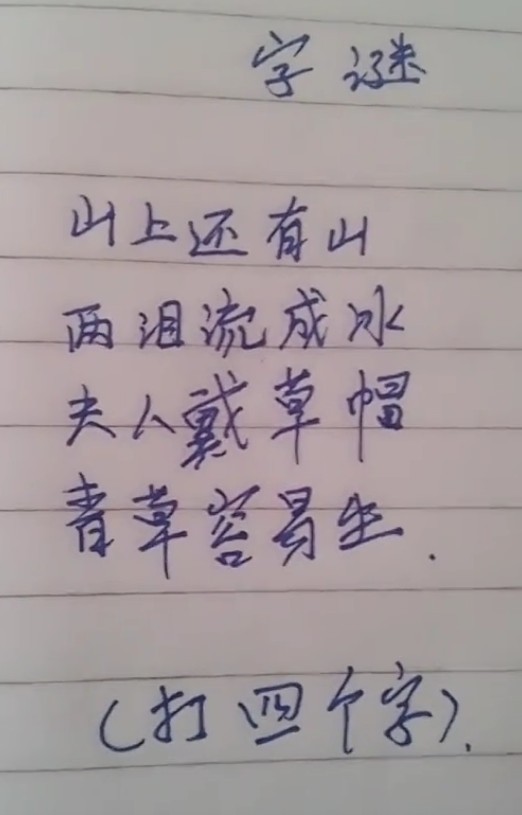 字谜
山上还有山
两泪流成冰
夫人戴草帽
青草容易生.
(打四个字).